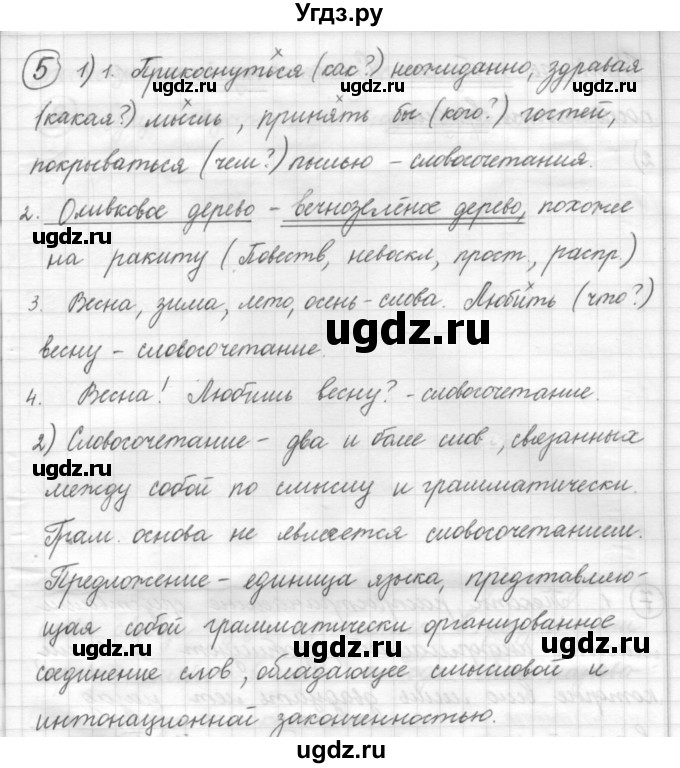 Угдз.ру
5 1) 1. Прикоснуться (как?) неожиданно, здравая
ugdz.ru ugdz.ru ugdz.ru
(какая?) мысль, принять бы (кого?) гостей,
покрываться (чем?) пылью – словосочетания.
ugdz.ru
2. Оливковое дерево – вечнозелёное дерево, похожее
на ракиту (Повеств, невоскл, прост, распр.)
ugdz.ru ugdz.ru
3. Весна, зима, лето, осень – слова. Любить (что?)
ugdz.ru
весну – словосочетание.
4. Весна! Любишь весну? – словосочетание.
ugdz.ru ugdz.ru
2) Словосочетание – два и боле слов, связанных
ugdz.ru
между собой по смыслу и грамматически.
Грам. основа не является словосочетанием.
ugdz.ru
Предложение – единица языка, представляю-
щая собой грамматически организованное
ugdz.ru ugdz.ru
соединение слов, обладающее смысловой и
интонационной законченностью.
ugdz.ru ugdz.ru